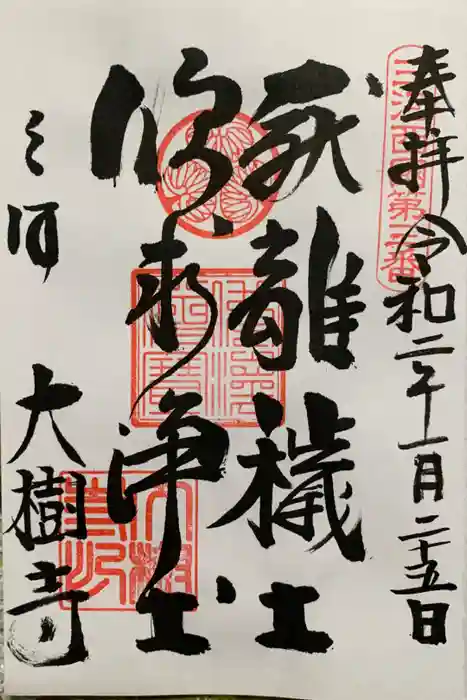 奉拝 令和二年一月二十五日
厭離穢土
欣求浄土
三河
大樹寺
佛法僧寶